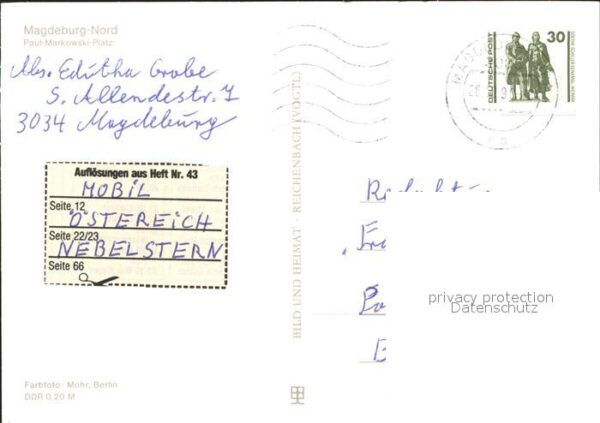 Magdeburg-Nord
Paul-Markowski-Platz
Abs. Editha Grobe
S. Allendestr. 7
3034 Magdeburg
Auflösungen aus Heft Nr. 43
MOBIL
Seite 12
ÖSTEREICH
Seite 22/23
NEBELSTERN
Seite 66
Farbfoto: Mohr, Berlin
DDR 0,20 M
BILD UND HEIMAT · REICHENBACH (VOGTL)
30
DEUTSCHE POST
privacy protection
Datenschutz